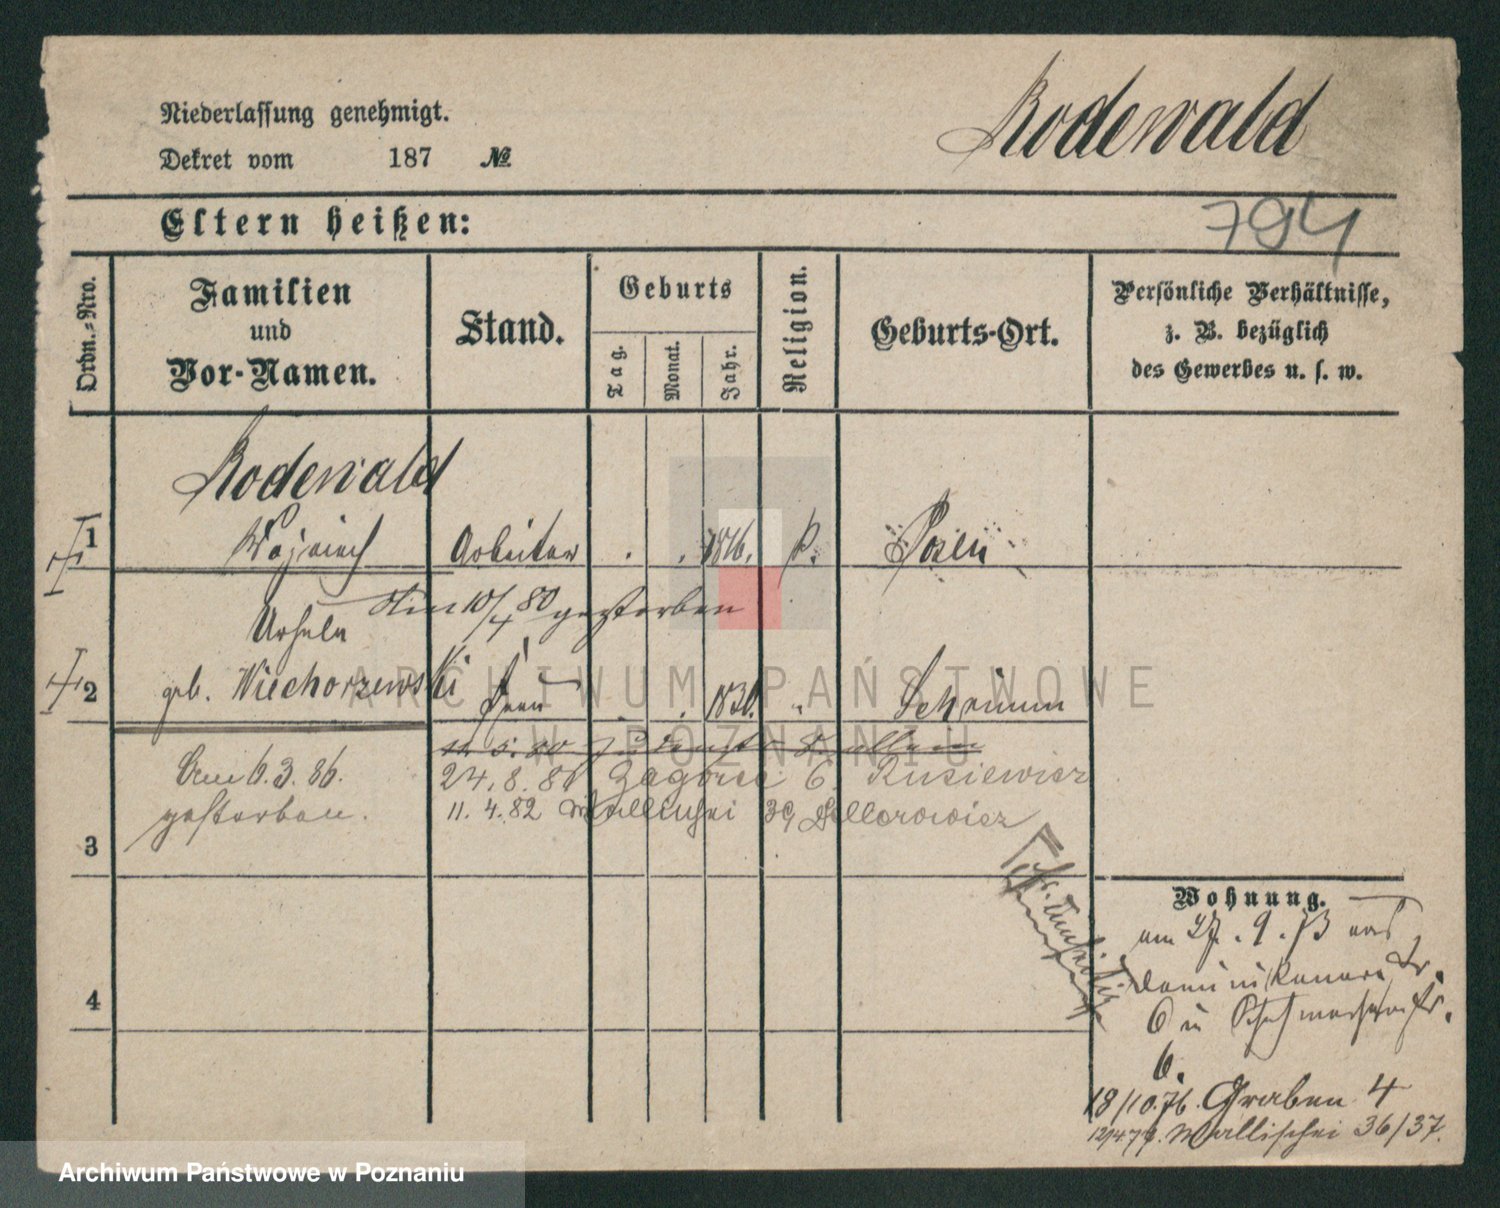 Niederlassung genehmigt.
Dekret vom 187 №
Rodewald
794
Eltern heißen:
Ordn.-Nro.
Familien
und
Vor-Namen.
Stand.
Geburts
Tag.
Monat.
Jahr.
Religion.
Geburts-Ort.
Persönliche Verhältnisse,
z. B. bezüglich
des Gewerbes u. s. w.
Rodewald
1 Arbeiter . . 1816. Posen
10/4 80 gestorben
Ursula
2 geb. Wiechorzewski Frau . . 1830. " Schrimm
Am 6.3.86.
gestorben.
12. 5. 80
24. 8. 81 Zagorze 6 Rusiewicz
11. 4. 82 Wallischei 39
3
4
Wohnung.
am 27. 9. 73 aus
Dominikaner Str.
6 in
6.
18/10.76. Graben 4
12/4 79. Wallischei 36/37.
ARCHIWUM PAŃSTWOWE
W POZNANIU
Archiwum Państwowe w Poznaniu